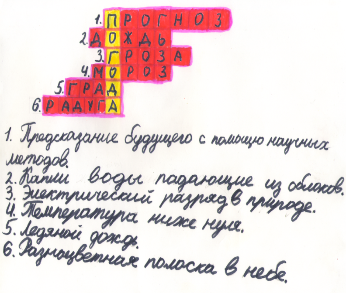 1. ПРОГНОЗ
2. ДОЖДЬ
3. ГРОЗА
4. МОРОЗ
5. ГРАД
6. РАДУГА
1. Предсказание будущего с помощю научных
методов.
2. Капли воды падающие из облаков.
3. Электрический разряд в природе.
4. Температура ниже нуля.
5. Ледяной дождь.
6. Разноцветная полоска в небе.